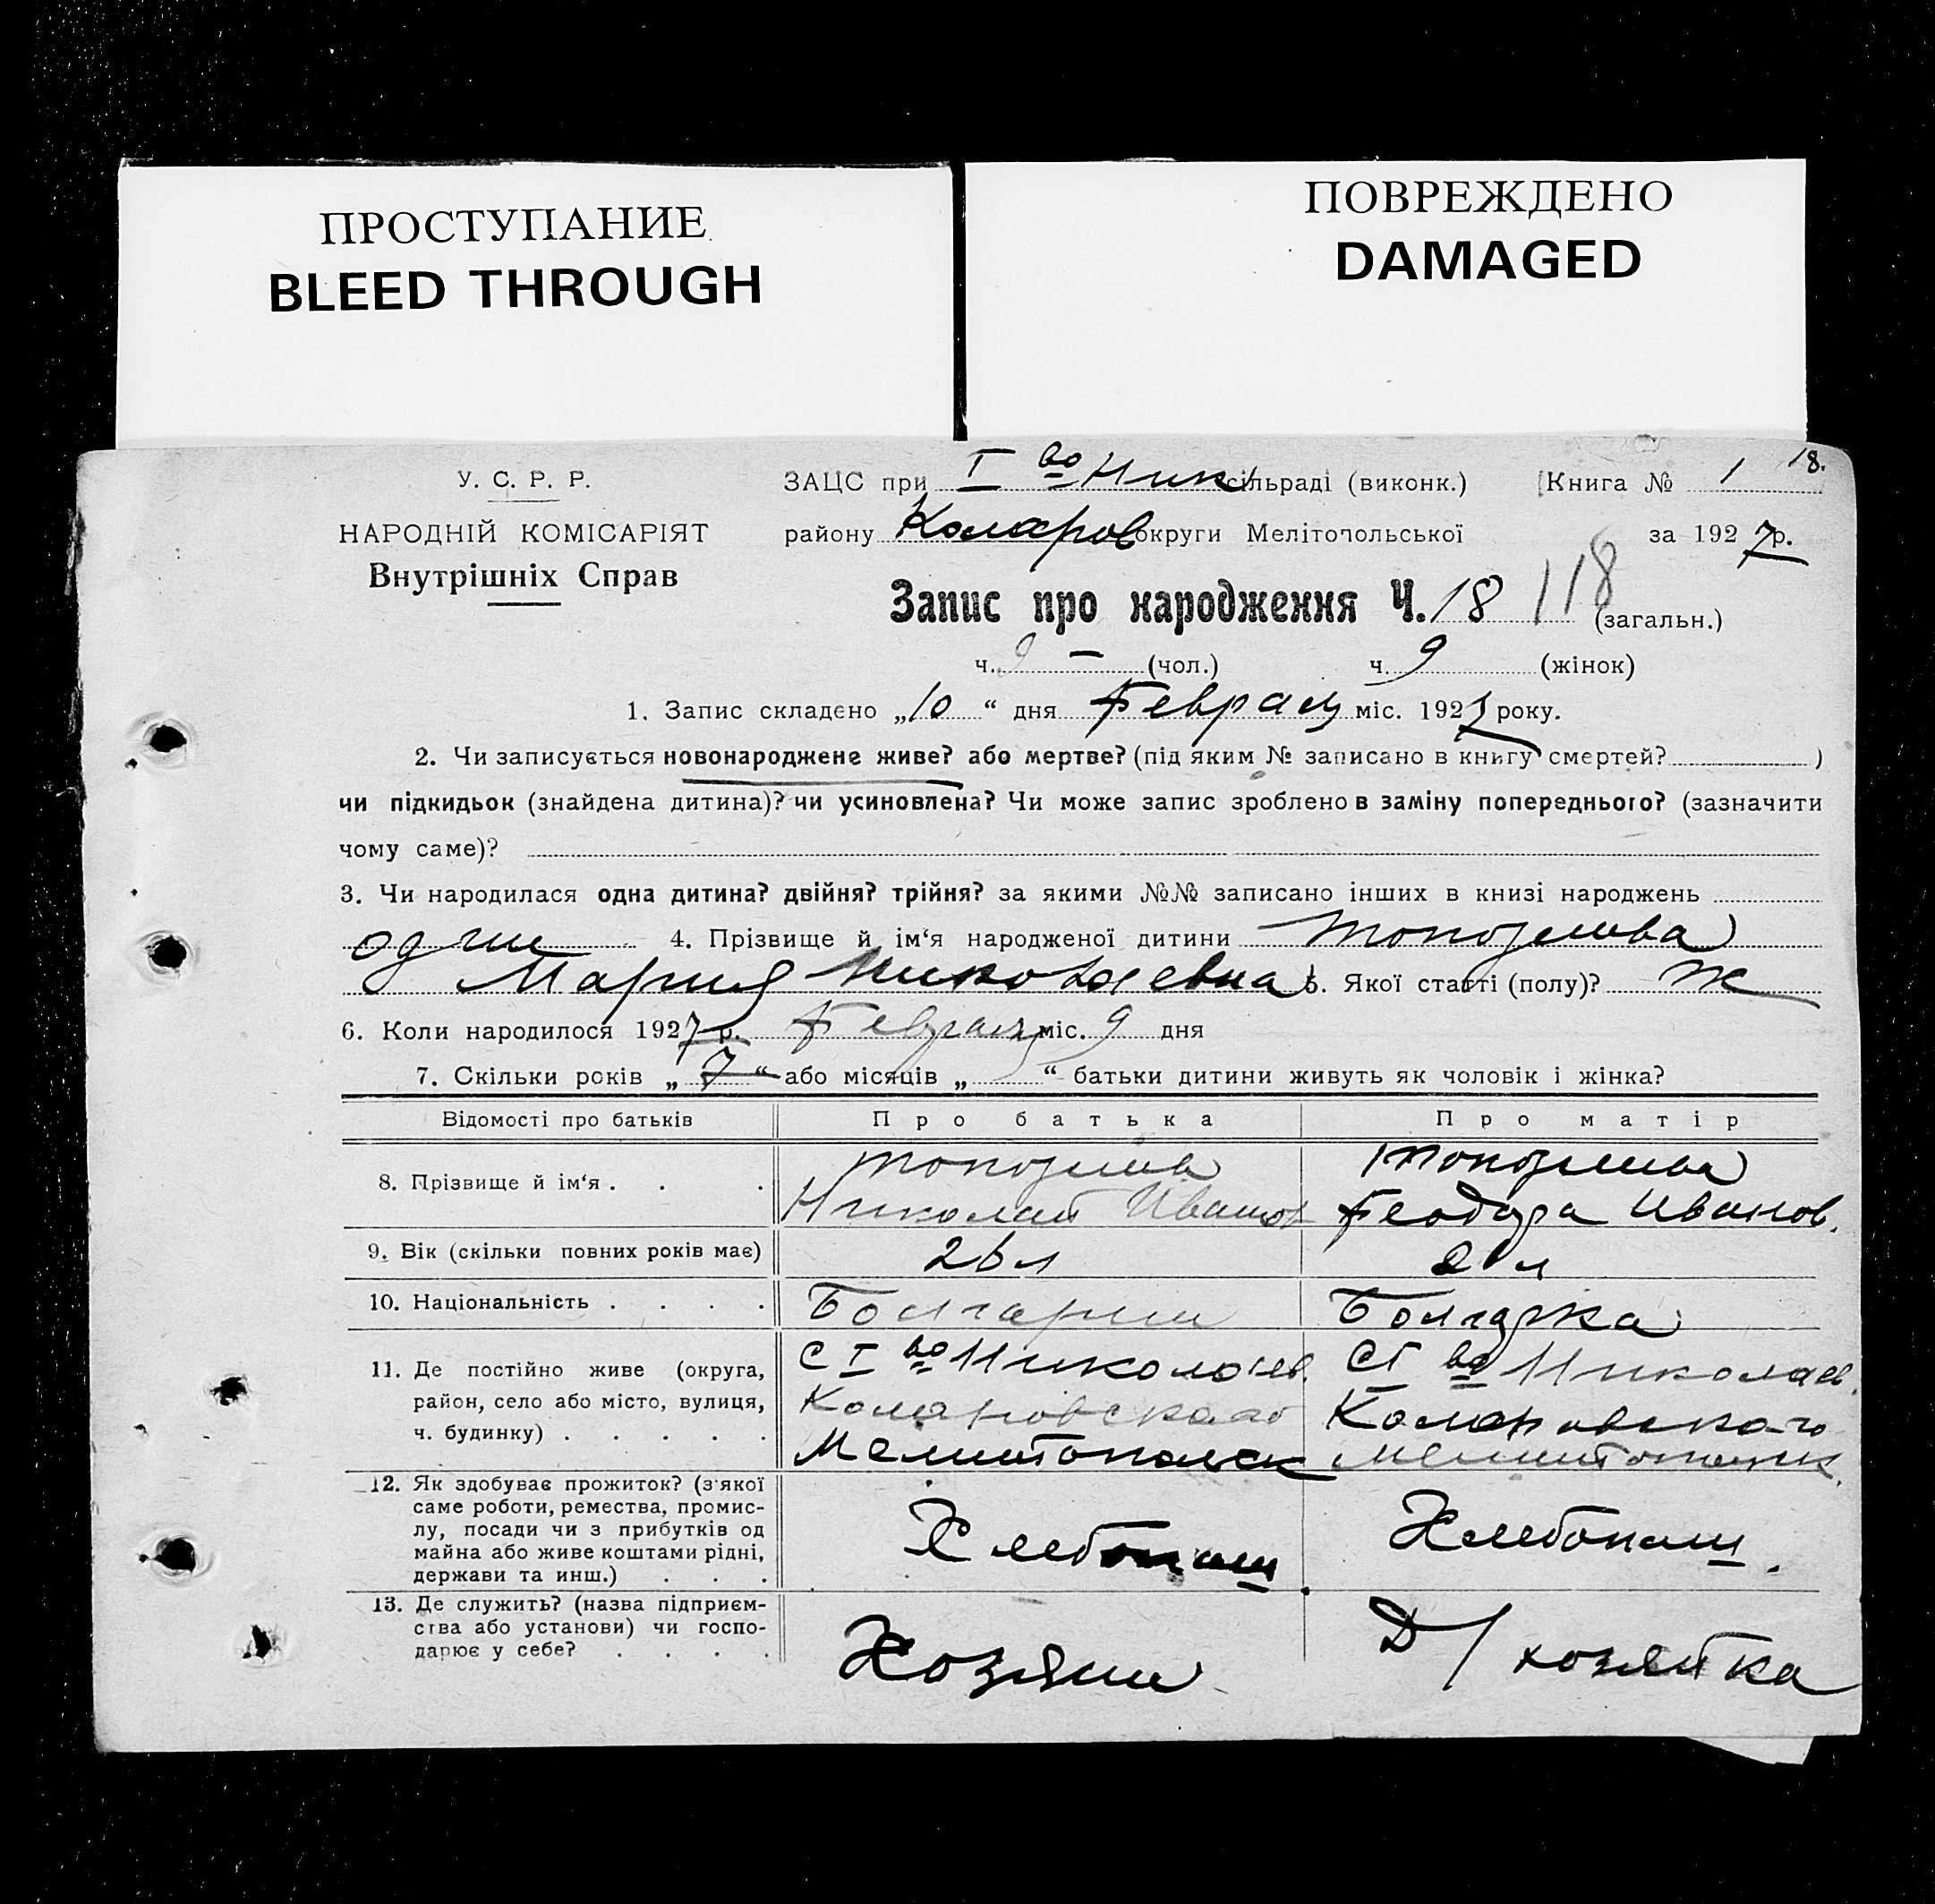 ПРОСТУПАНИЕ
BLEED THROUGH
ПОВРЕЖДЕНО
DAMAGED
18.
У. С. Р. Р.
ЗАЦС при I во Ник сільраді (виконк.) Книга № 1
НАРОДНІЙ КОМІСАРІЯТ
Внутрішніх Справ
району Коларов округи Мелітопольської за 1927 р.
Запис про народження Ч. 18 118 (загальн.)
ч. 9 – (чол.) ч. 9 (жінок)
1. Запис складєно „10“ дня Февраля міс. 1927 року.
2. Чи записується новонароджене живе? або мертве? (під яким № записано в книгу смертей? )
чи підкидьок (знайдена дитина)? чи усиновлена? Чи може запис зроблено в заміну попереднього? (зазначити
чому саме)?
3. Чи народилася одна дитина? двійня? трійня? за якими №№ записано інших в книзі народжень
один 4. Прізвище й ім‘я народженої дитини
Мария Николаевна 5. Якої статті (полу)? Ж
6. Коли народилося 1927 р. Февраля міс. 9 дня
7. Скільки років „7“ або місяців „ “ батьки дитини живуть як чоловік і жінка?
Відомості про батьків Про батька Про матір
8. Прізвище й ім‘я . . .
Николай Иванов Феодора Иванов.
9. Вік (скільки повних років має) 26 л 21 л
10. Національність . . . . Болгарин Болгарка
11. Де постійно живе (округа, С I во Николаев. С I во Николаев.
район, село або місто, вулиця, Коларовского Коларовского
ч. будинку) . . . . . Мелитопольск Мелитопольск.
12. Як здобуває прожиток? (з‘якої
саме роботи, ремества, промис-
лу, посади чи з прибутків од Хлебопаш. Хлебопаш.
майна або живе коштами рідні,
держави та инш.) . . .
13. Де служить? (назва підприєм-
ства або установи) чи госпо-
дарює у себе? . . . . Хозяин Д/хозяйка